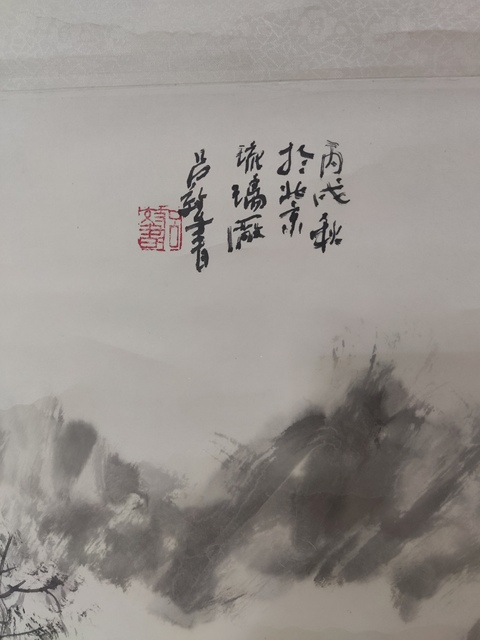 丙戌秋
於北京
琉璃廠
吕青